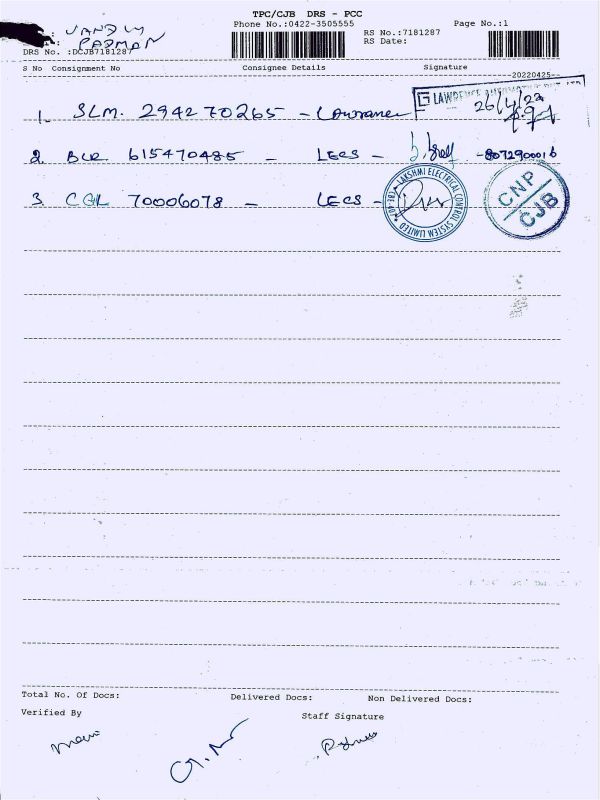 TPC/CJB DRS - PCC
Phone No.:0422-3505555 Page No.:1
RS No.:7181287
RS Date:
PADMAN
DRS No. :DCJB7181287
S No Consignment No Consignee Details Signature
--20220425--
1. SLM. 294270265 - Lawrance LAWRENCE 26/4/22
2. BLR 615470485 - LECS - 8072900016
3. CGL 70006078 - LECS - LAKSHMI ELECTRICAL CONTROL SYSTEM LIMITED CNP CJB
Total No. Of Docs: Delivered Docs: Non Delivered Docs:
Verified By Staff Signature